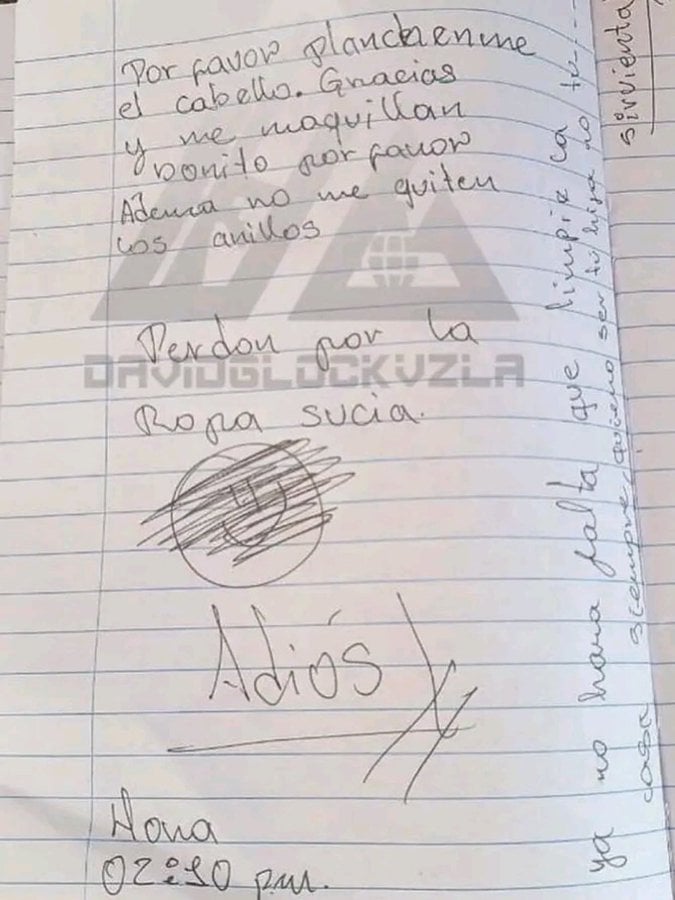 Por favor planchenme
el cabello. Gracias
y me maquillan
bonito por favor
Ademas no me quiten
los anillos
DAVIDGLOCKVZLA
Perdon por la
Ropa sucia.
Adiós
Hora
02:10 pm.
ya no hara falta que limpie la tu
casa siempre, quiero ser tu hija no tu
sirvienta